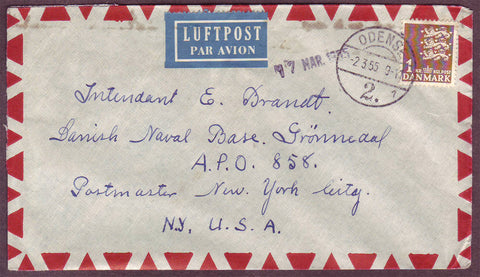 LUFTPOST
PAR AVION
ODENSE
-2.3.55.9-
2.
MAR.
1
DANMARK
Intendant E. Brandt.
Danish Naval Base. Grönnedal
A.P.O. 858.
Postmaster New York City.
N.Y. U.S.A.